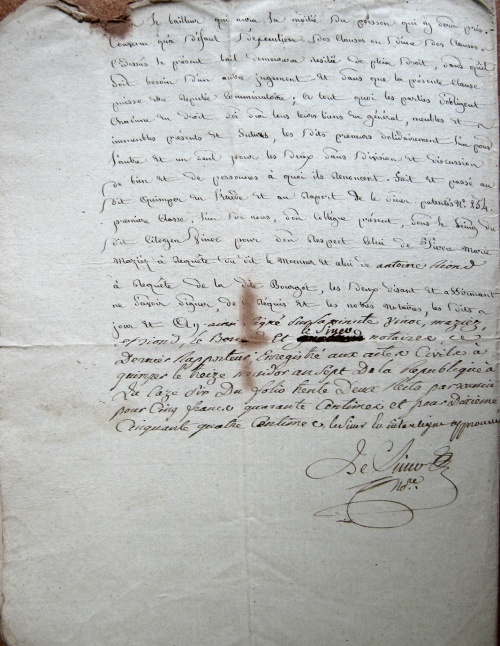 le bailleur qui aura la moitié du poisson qui y sera pris.
qu'à défaut d'exécution des clauses ou d'une des clauses
ci dessus le présent bail demeurera résilié de plein droit, sans qu'il
soit besoin d'un autre jugement et sans que la présente clause
puisse être réputée comminatoire; a tout quoi les parties s'obligent
chacune en droit soi sur tous leurs biens en général, meubles et
immeubles présents et futurs, les dits preneurs solidairement l'un pour
l'autre et un seul pour les deux sans division et discussion
de bien et de personnes à quoi ils renoncent. fait et passé au
dit Quimper en l'étude et au raport de le siner patenté N.° 254
première classe, l'un de nous, son collègue présent, sous le seing du
dit citoyen Vinoc pour son respect celui de Pierre Marie
Maziés à requête du dit le Meneur et celui de antoine Riond
à requête de la dite Bourgot, les deux disant et affirmant
ne savoir signer, de requis et les nôtres notaires, les dits
jour et an ainsi signé sur la minute Vinoc, maziés,
riond, le Bour et le Siner notaires, ce
dernier rapporteur Enregistré aux actes Civiles à
quimper le treize messidor an sept de la République à
La Caze six du folio trente Deux Recto par
pour cinq francs quarante Centimes et pour Dixieme
Cinquante quatre Centimes, le siner en interligne approuvé
Le Siner
No.re